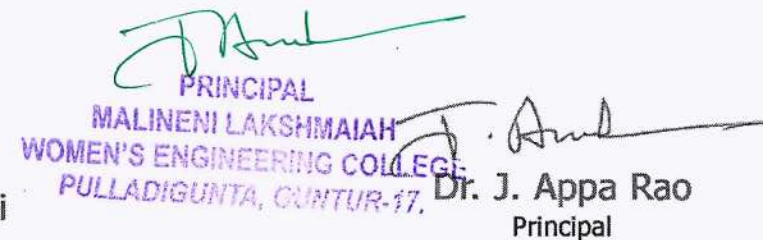 PRINCIPAL
MALINENI LAKSHMAIAH
WOMEN'S ENGINEERING COLLEGE
PULLADIGUNTA, GUNTUR-17.
Dr. J. Appa Rao
Principal
i